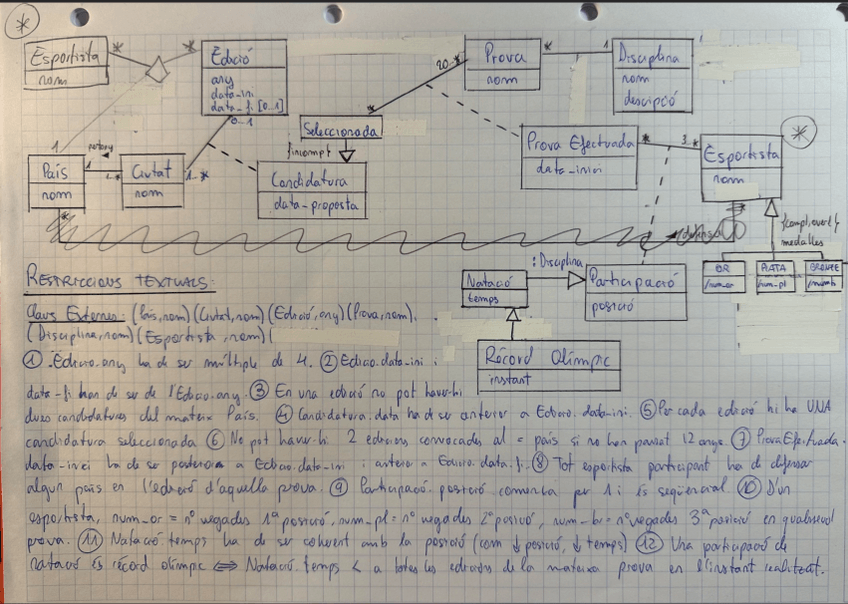 *
Esportista
nom
*
*
Edició
any
data_ini
data_fi [0..1]
0..1
20..*
Prova
nom
*
1
Disciplina
nom
descipció
*
Seleccionada
{incompl}
Candidatura
data-proposta
1
País
nom
1
1..*
Ciutat
nom
1..*
Prova Efectuada
data_inici
*
3..*
Esportista
nom
*
*
{compl, overl}
medalles
OR
/num_or
PLATA
/num_pl
BRONZE
Natació
temps
:Disciplina
Participació
posició
Rècord Olímpic
instant
RESTRICCIONS TEXTUALS:
Claus Externes: (País,nom)(Ciutat,nom)(Edició,any)(Prova,nom),
(Disciplina,nom)(Esportista,nom)(
① Edicio.any ha de ser múltiple de 4. ② Edicio.data_ini i
data_fi han de ser de l'Edicio.any. ③ En una edició no pot haver-hi
dues candidatures del mateix País. ④ Candidatura.data ha de ser anterior a Edicio.data-ini. ⑤ Per cada edició hi ha UNA
candidatura seleccionada ⑥ No pot haver-hi 2 edicions convocades al = país si no han passat 12 anys. ⑦ ProvaEfectuada.
data_inici ha de ser posterior a Edicio.data_ini i anterior a Edicio.data_fi. ⑧ Tot esportista participant ha de defensar
algun país en l'edició d'aquella prova. ⑨ Participació.posició comença per 1 i és seqüencial. ⑩ D'un
esportista, num_or = nº vegades 1ª posició, num_pl = nº vegades 2ª posició, num_br = nº vegades 3ª posició en qualsevol
prova. ⑪ Natació.temps ha de ser coherent amb la posició (com ↓ posició, ↓ temps) ⑫ Una participació de
natació és rècord olímpic ⟺ Natació.temps < a totes les edicions de la mateixa prova en l'instant realitzat.